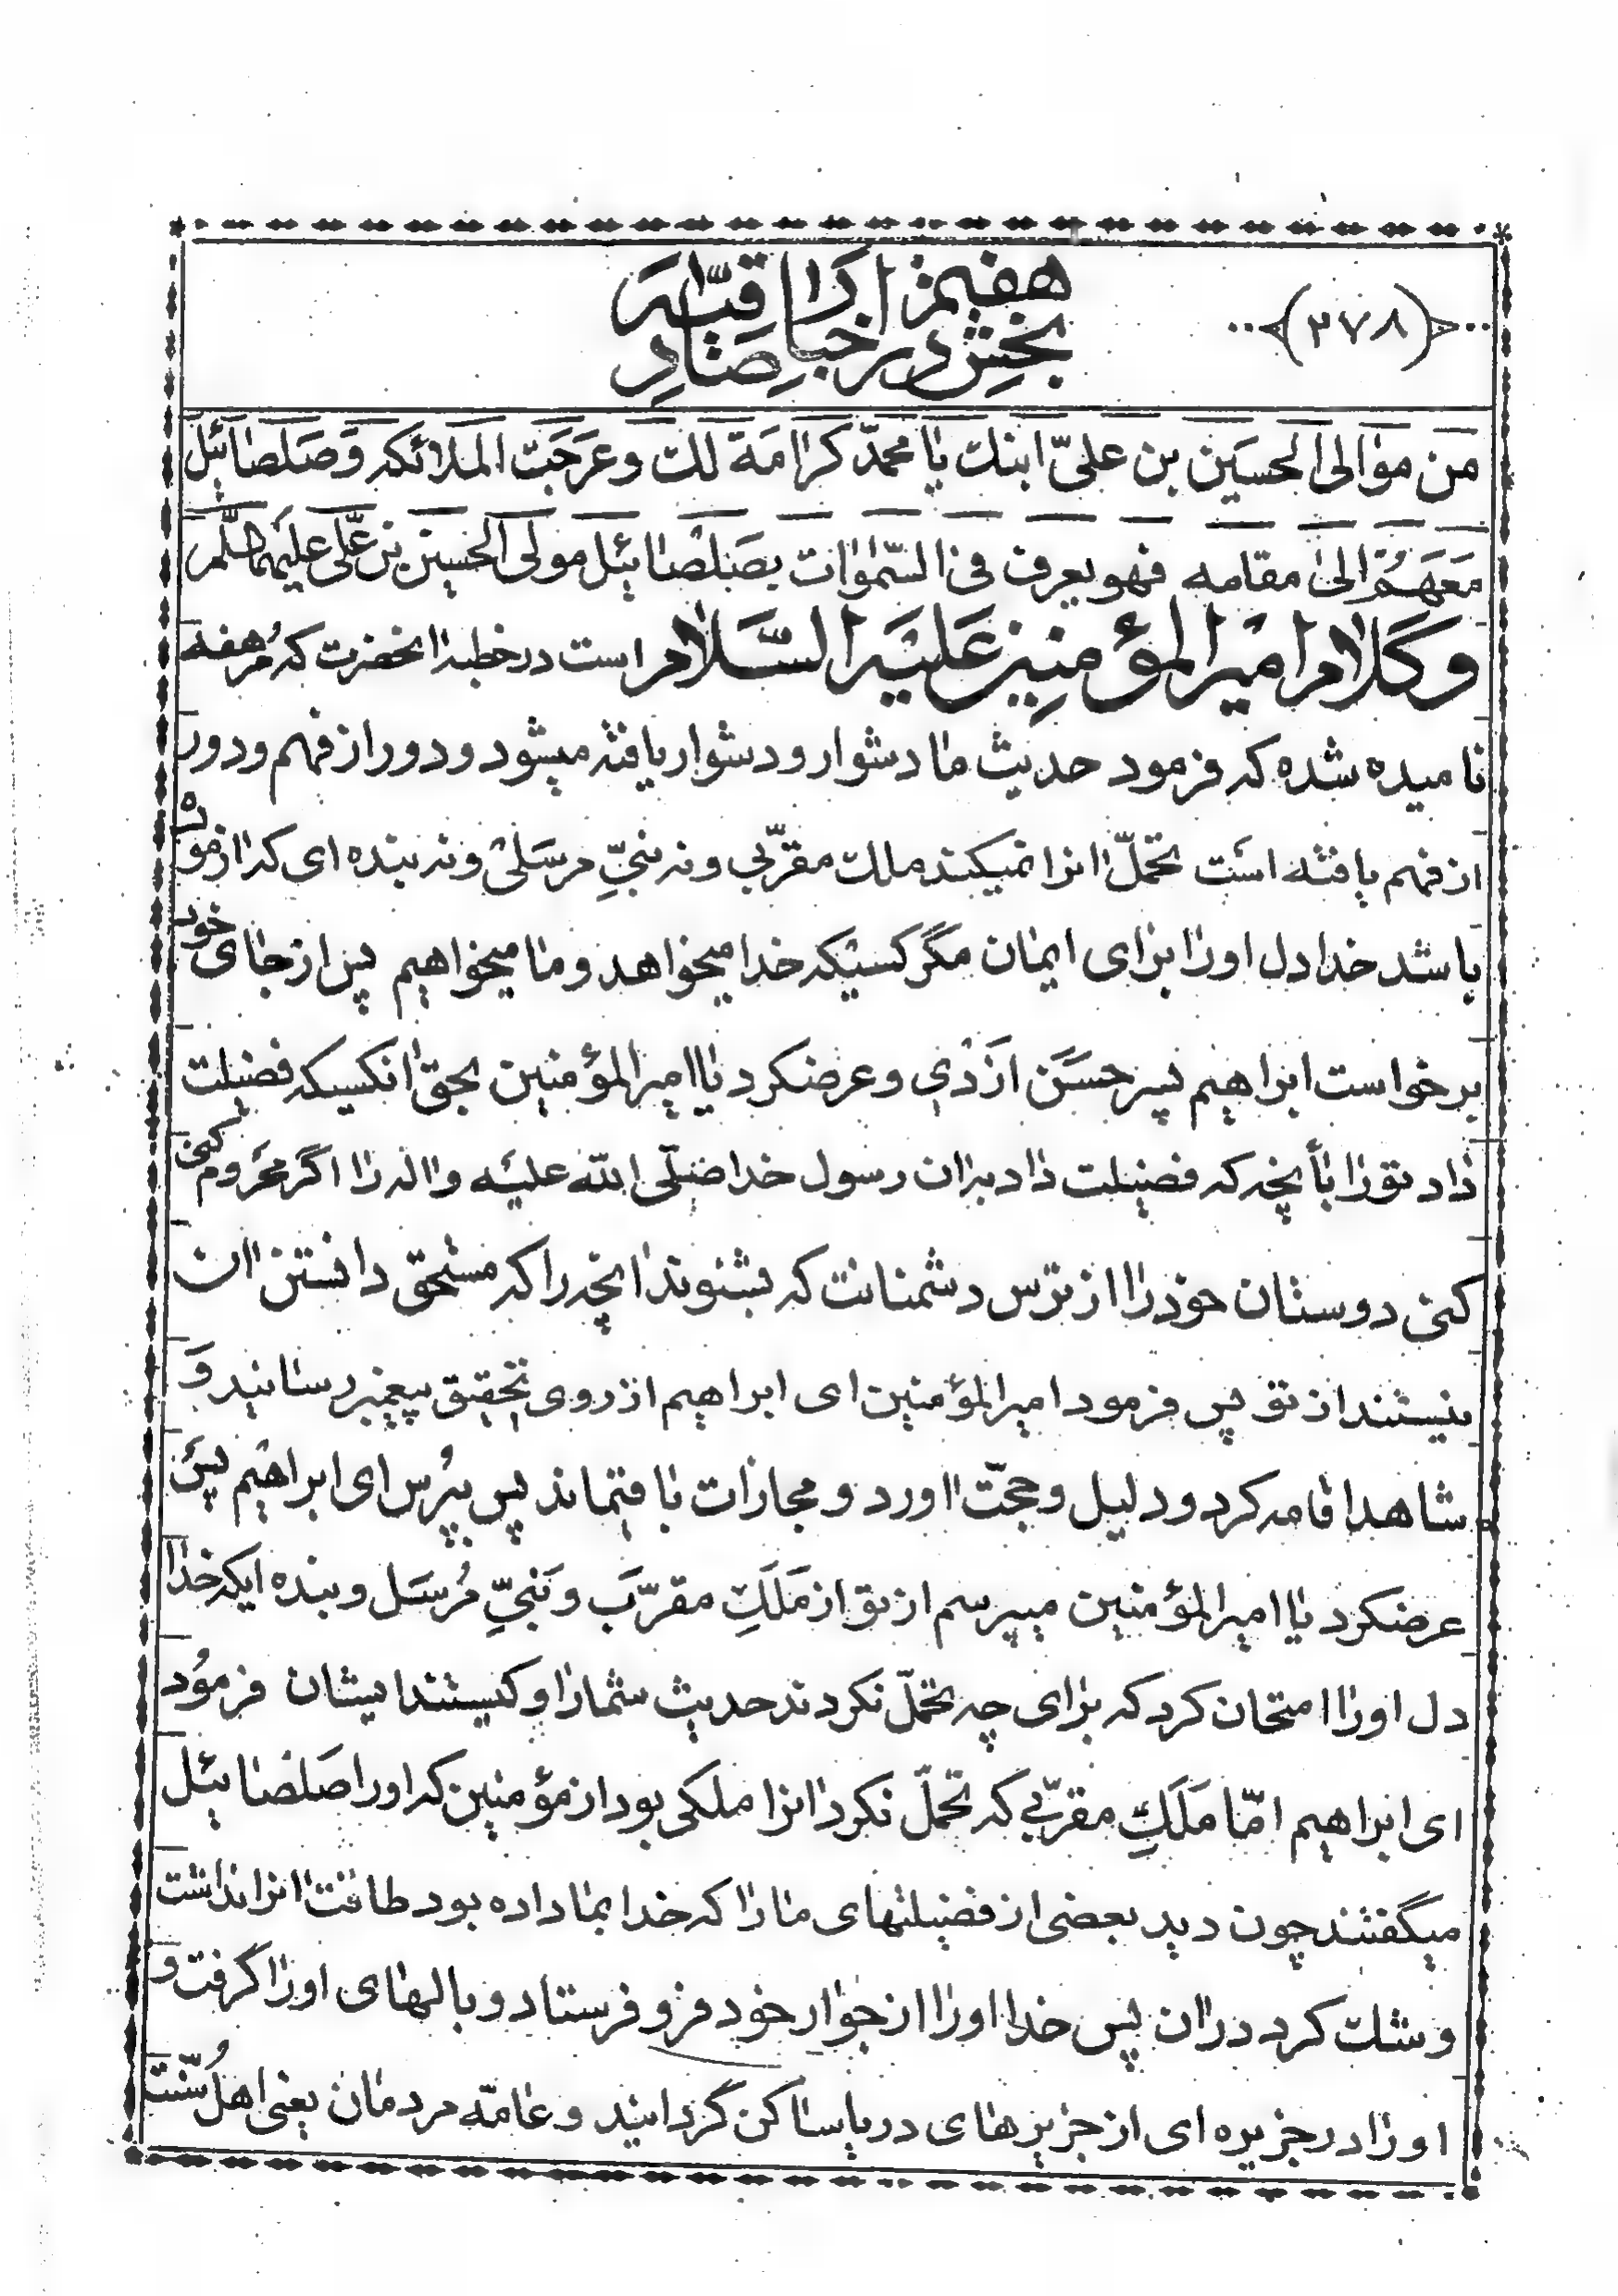 ﴿۲۷۸﴾
بخش هفتم در اخبار صادره از ائمه
من موالی الحسین بن علیّ ابنك یا محمدّ کرامة لك و عرجت الملائکه و صلصائیل
معهم الی مقامه فهو یعرف فی السّموات بصلصائیل مولی الحسین بن علّی علیهما السّلم
و کلام امیر المؤمنین علیه السّلام است در خطبه انحضرت که
نامیده شده که فرمود حدیث ما دشوار و دشوار یافته میشود و دور از فهم و دور
از فهم یافته است تحمّل انرا نمیکند ملك مقرّبی و نه نبیّ مرسلی و نه بنده ای که ازموده
باشد خدا دل او را برای ایمان مگر کسیکه خدا میخواهد و ما میخواهیم پس از جای خود
برخواست ابراهیم پسر حسن ازدی و عرضکرد یا امیر المؤمنین بحق انکسیکه فضیلت
داد تو را بأنچه که فضیلت داد بران رسول خدا صلّی الله علیه و اله را اگر محروم کنی
کنی دوستان خود را از ترس دشمنانت که بشنوند انچه را که مستحق دانستن ان
نیستند از تو پس فرمود امیر المؤمنین ای ابراهیم از روی تحقیق پیغمبر رسانید و
شاهد اقامه کرد و دلیل و حجّت اورد و مجازات باقیماند پس بپرس ای ابراهیم پس
عرضکرد یا امیر المؤمنین میپرسم از تو از ملك مقرّب و نبیّ مرسل و بنده ایکه خدا
دل او را امتحان کرد که برای چه تحمّل نکردند حدیث شما را و کیستند ایشان فرمود
ای ابراهیم امّا ملك مقرّبی که تحمّل نکرد انرا ملکی بود از مؤمنین که او را صلصائیل
میگفتند چون دید بعضی از فضیلتهای ما را که خدا بما داده بود طاقت انرا نداشت
و شك کرد در ان پس خدا او را از جوار خود فرو فرستاد و بالهای او را گرفت و
او را در جزیره ای از جزیرهای دریا ساکن گردانید و عامّه مردمان یعنی اهل سنّت